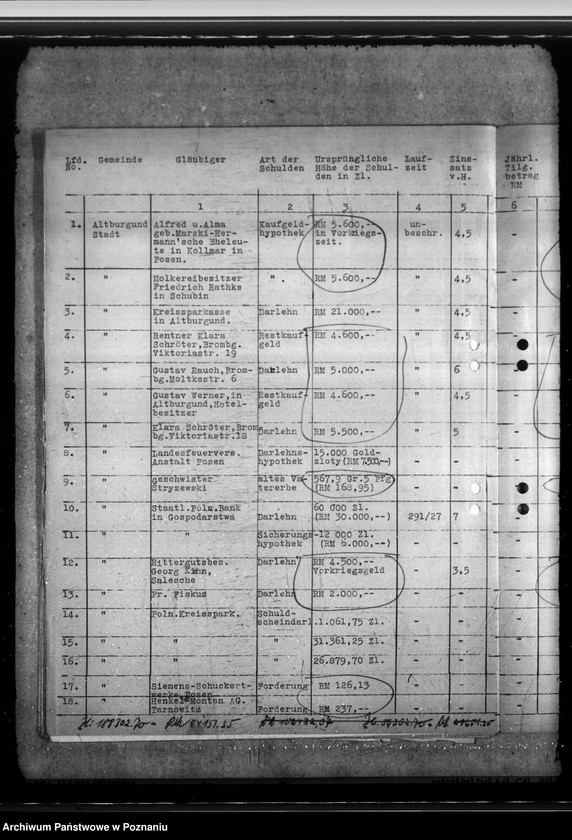 Lfd. No. Gemeinde Gläubiger Art der Schulden Ursprüngliche Höhe der Schulden in Zl. Laufzeit Zinssatz v.H. Jährl. Tilg. betrag RM
1 2 3 4 5 6
1. Altburgund Alfred u.Alma Kaufgeld- RM 5.600,-- un-
Stadt geb.Marski-Her- hypothek in Vorkriegs- beschr. 4,5 -
mann'sche Eheleu- zeit.
te in Kollmar in
Posen.
2. " Molkereibesitzer " . RM 5.600,-- " 4,5 -
Friedrich Rathke
in Schubin
3. " Kreissparkasse Darlehn RM 21.000,-- " 4,5 -
in Altburgund.
4. " Rentner Klara Restkauf- RM 4.600,-- " 4,5 -
Schröter,Brombg. geld
Viktoriastr. 19
5. " Gustav Rauch,Brom- Darlehn RM 5.000,-- " 6 -
bg.Moltkestr. 6
6. " Gustav Werner,in Restkauf- RM 4.600,-- " 4,5 -
Altburgund,Hotel- geld
besitzer
7. " Klara Schröter,Brom Darlehn RM 5.500,-- " 5 -
bg.Viktoriastr.18
8. " Landesfeuervers. Darlehns- 15.000 Gold- - - -
Anstalt Posen hypothek zloty(RM 7.500,--)
9. " Geschwister altes Va- 567,9 Gr.5 Pfg - - -
Stryzewski tererbe (RM 168,95)
10. " Staatl.Poln.Bank 60 000 Zl.
in Gospodarstwa Darlehn (RM 30.000,--) 291/27 7 -
11. " " Sicherungs- 12 000 Zl. - - -
hypothek (RM 6.000,--)
12. " Rittergutsbes. Darlehn RM 4.500,-- - 3,5 -
Georg Vorkriegsgeld
Salesche
13. " Pr. Fiskus Darlehn RM 2.000,-- - - -
14. " Poln.Kreisspark. Schuld- - - -
scheindarl. 1.061,75 Zl.
15. " " 31.361,25 Zl. - - -
16. " " 26.879,70 Zl. - - -
17. " Siemens-Schuckert- Forderung RM 126,13 - - -
werke Posen
18. " Henkel-Montan AG. - - -
Tarnowitz Forderung RM 237,--
Archiwum Państwowe w Poznaniu